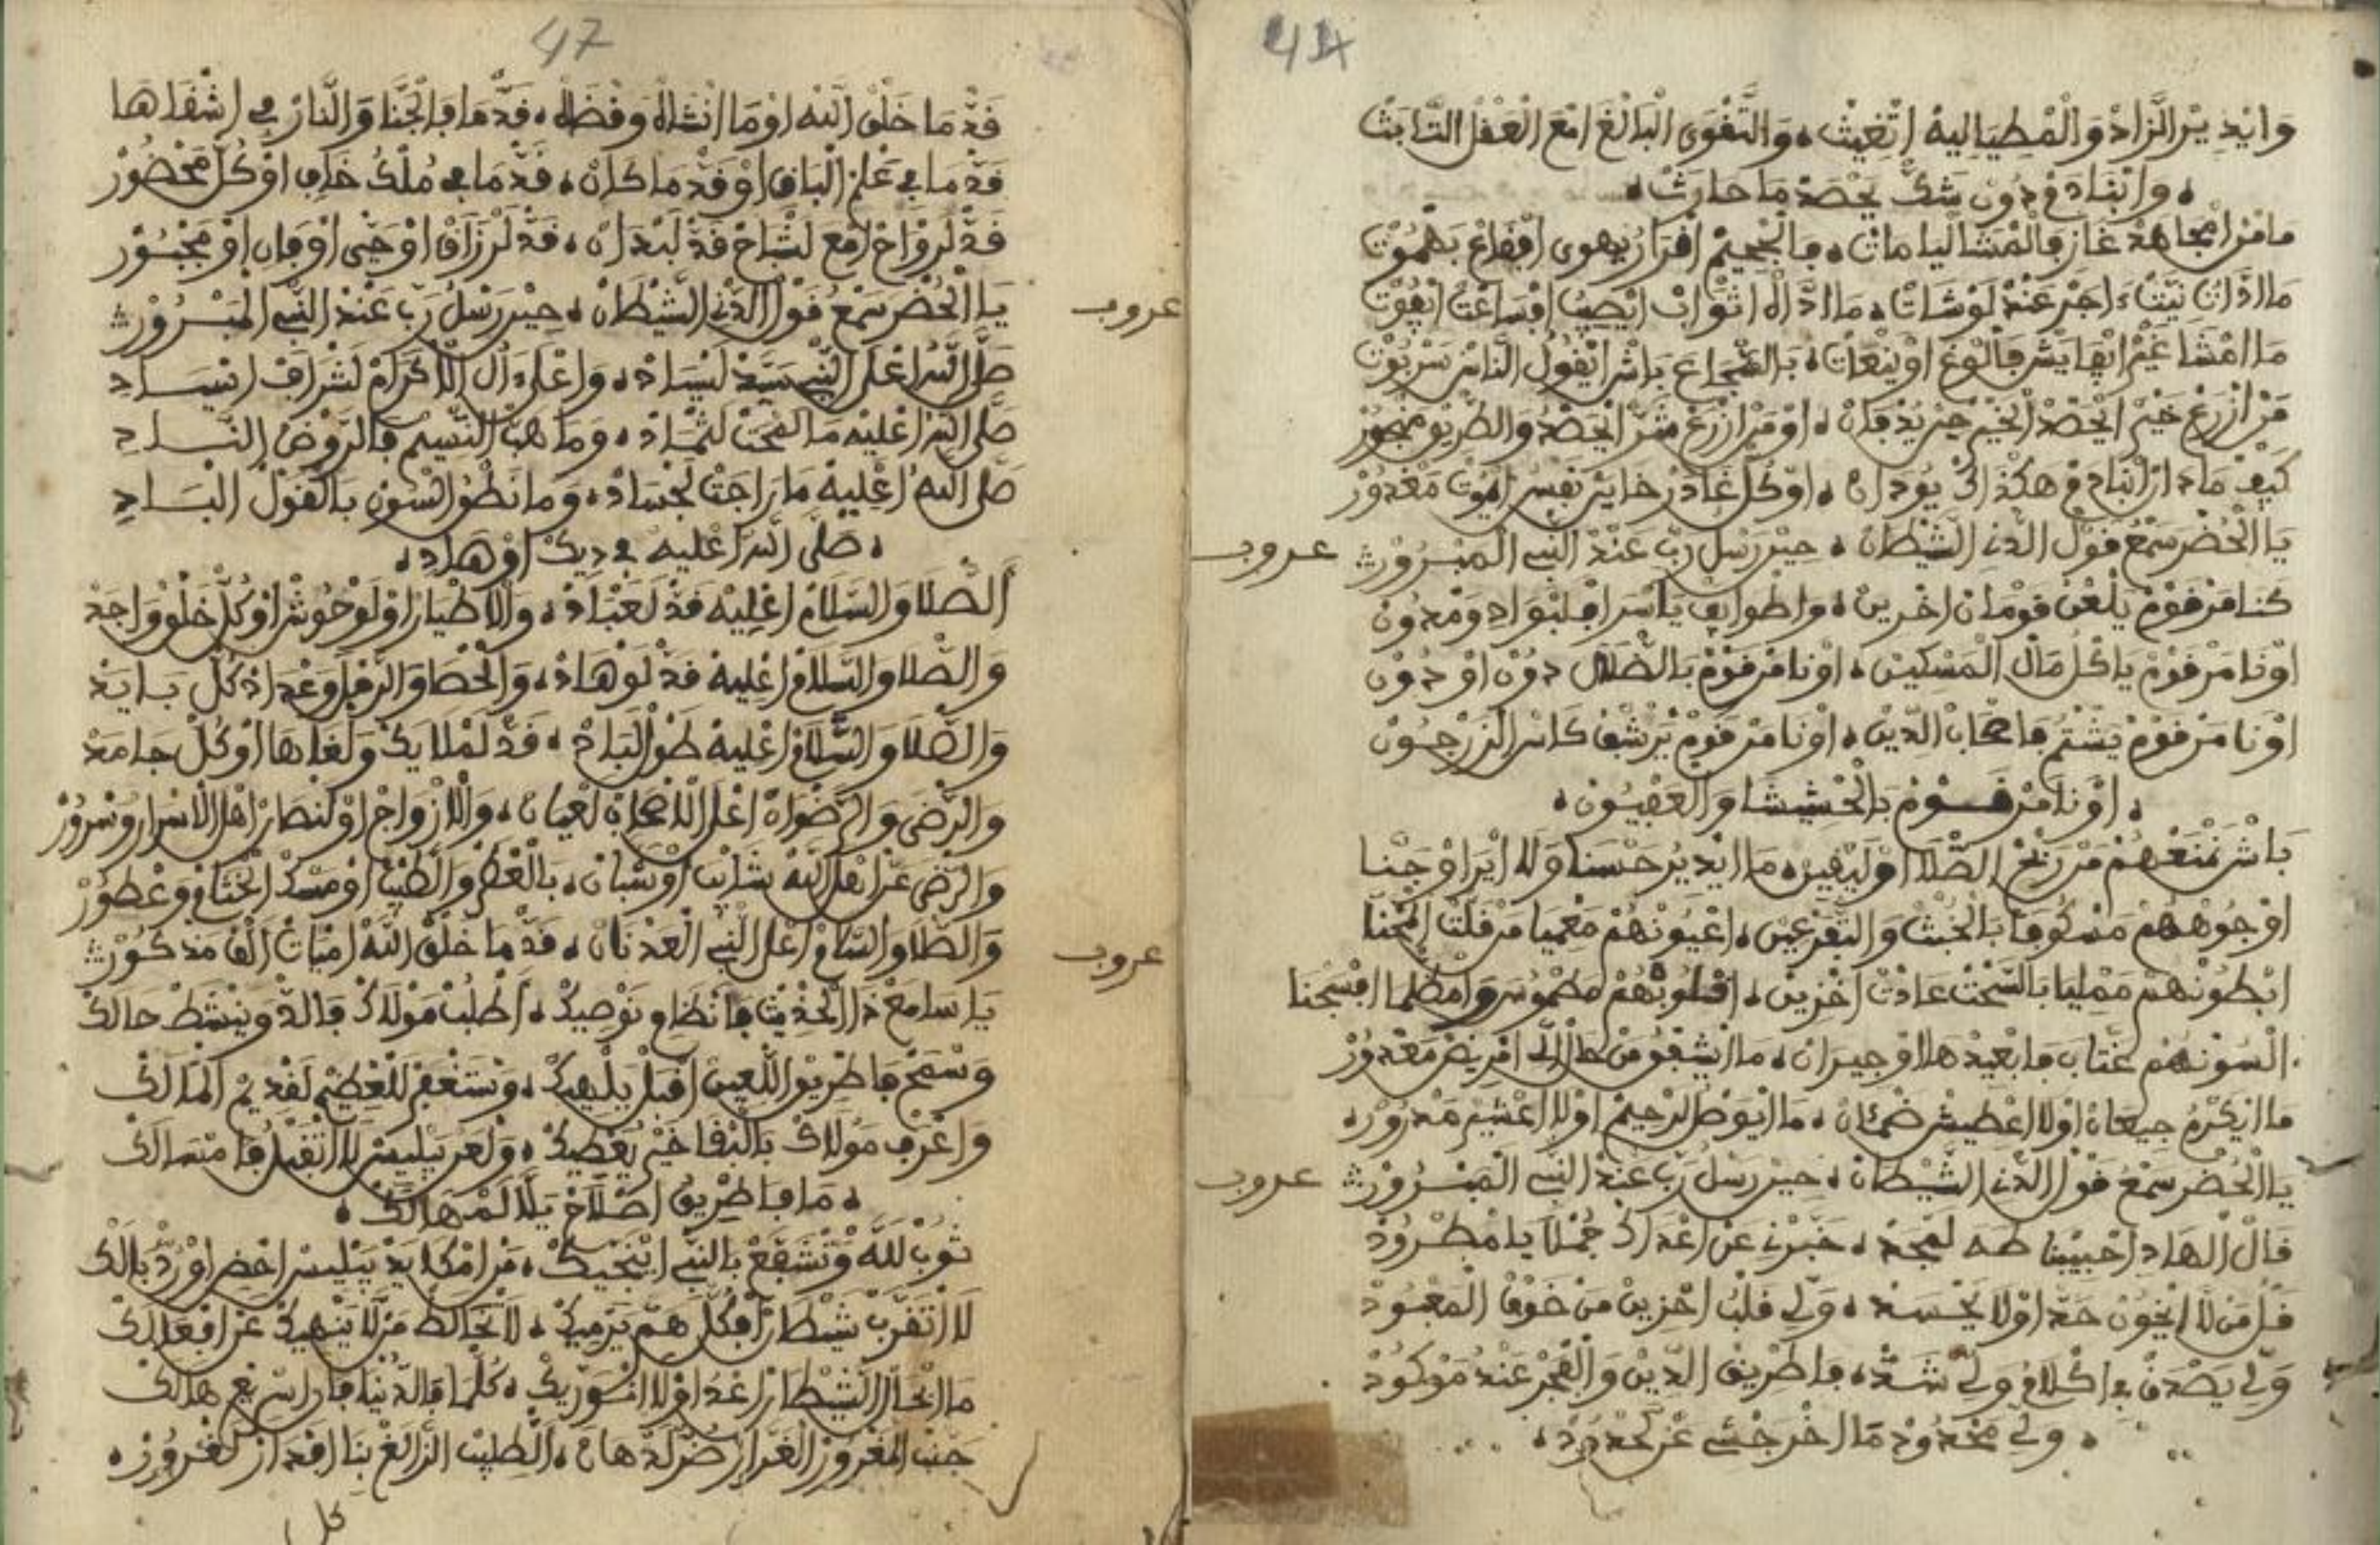 44
وَايْدِيرْ الزَّادْ وَالْمْطِيَا لِيهْ اتْغِيثْ، وَالتَّقْوَى الْبَالْغَا امْعَ الْعَقْلْ الثَّابَثْ
، وابْنَادَمْ دُونْ شَكّْ يَحْصَدْ مَا حَارَثْ،
مَا مْنْ امْجَاهَدْ غَازِ فَالْمْشَالْيَا مَاتْ، فَالْجْحِيمْ افْرَارُ يهوى افْقَاعْ بَهْمُوتْ
مَا اذَّاتْ نِيتُ اجَرْ عَنْدْ لَوْشَاتْ، مَا ادَّالُ اثْوَابْ ايْصِيبُ افْسَاعْتْ ايْفُوتْ
مَا امْشَا غَيْرْ ايْفَايَشْ فَالْوْغَ اوْيَنْعَاتْ، بَالشّْجَاعَ بَاشْ ايْقُولُ النَّاسْ سَرْبُوتْ
مَنْ ازْرَعْ خَيْرْ ايْحْصَدْ الْخَيْرْ حِينْ يُدْفَانْ، اوْمَنْ ازْرَعْ شَرّْ ايْحَصْدُ وَالطّْرِيقْ مَحْجُورْ
كَيْفْ مَا دَارْ ابْنَادَمْ هَكْذَاكْ يُودَانْ، اوْكُلّْ غَادَرْ خَايَنْ نَفْسُ ايْمُوتْ مَغْدُورْ
يَا الْحُضَّرْ سَمْعُ قَوْلْ الدّْنِي الشَّيْطَانْ، حِينْ رَسْلُ رَبِّ عَنْدْ النّْبِي الْمَبْرُورْ
عروب
كُنَا مَنْ قَوْمْ يَلْعَنْ قَوْمَانْ اخْرِينْ، واطْوَايَفْ يَاسْرَا فِلَبْوَادِ وَمْدُونْ
اوْنَا مَنْ قَوْمْ يَاكُلْ مَالْ الْمَسْكِينْ، اوْنَا مَنْ قَوْمْ بَالضّْلَالْ دُونْ اوْدُونْ
اوْنَا مَنْ قَوْمْ يَشْتَمْ فَاصْحَابْ الدِّينْ، اوْنَا مَنْ قَوْمْ يَرْشَفْ كَاسْ الزَّرْجُونْ
، اوْنَا مَنْ قَوْمْ بَالْحْشِيشَا وَالْعَفْيُونْ،
بَاشْ نَمْنَعْهُمْ مَنْ رَبْحْ الصّْلَا اوْلِيقِينْ، مَا ايْدِيرُ حَسْنَا وَلَا ايْرَاوْ جَنَّا
اوْجُوهْهُمْ مَنْكُوفَا بَالْخُبْثْ وَالتَّفَرْعِينْ، اعْيُونْهُمْ مَعْمِيَا مَنْ قَلْتْ الْحْنَّا
ابْطُونْهُمْ مَمْلِيَا بَالسَّحْتْ عَادَتْ اخْزِينْ، اقْلُوبْهُمْ مَطْمُوسَ وَامْظَلْمَا افْسَجْنَا
الْسُونْهُمْ عَتَّابَ فَابْعِيدْ هَلَا اوْجِيرَانْ، مَا ايْشَفْقُو مَنْ حَالْ الِّي امْرِيضْ مَعْدُورْ
مَا ايْكَرْمُ جِيعَانْ اوْلَا اعْطِيشْ ضَمْئَانْ، مَا ايْوَصْلْ لَرْحِيمْ اوْلَا اعْشِيرْ مَنْدُورْ،
يَا الْحُضَّرْ سَمْعُ قَوْلْ الدّْنِي الشَّيْطَانْ، حِينْ رَسْلُ رَبِّ عَنْدْ النّْبِي الْمَبْرُورْ
عروب
قَالْ الْهَادِ احْبِيبْنَا طَهَ لَمْجَدْ، خَبَّرْنِي عَنْ اعْدَاكْ جُمْلَا يَا مَطْرُودْ
قَلْ مَنْ لَا ايْخُونْ حَدّْ اوْلَا يَحْسَدْ، وَلِّي قَلْبُ احْزِينْ مَنْ خَوْفْ الْمَعْبُودْ
وَلِّي يَصْدَقْ فِي اكْلَامُ وَلِّي شَدّْ، فَاطْرِيقْ الدِّينْ وَالْفْجَرْ عَنْدُ مَوْكُودْ
، وَلِّي مَحْدُودْ مَا اخْرَجْشِي عَنْ لَحْدُودْ،
47
قَدّْ مَا خَلْقْ اللَّه اوْمَا انْشَالُ وَقْضَالُ، قَدّْ مَا فَالْجَنَّا وَالنَّارْ فِي اشْقَاهَا
قَدّْ مَا فِي عَلْمْ الْبَاقِ اوْقَدّْ مَا كَانْ، قَدّْ مَا فِي مُلْكُ خَافِ اوْكُلّْ مَحْضُورْ
قَدّْ لَرْوَاحْ امْعَ لَشْبَاحْ قَدّْ لَبْدَانْ، قَدّْ لَرْزَاقْ اوْحَيّْ اوْفَانِ اوْمَجْبُورْ
يَا الْحُضَّرْ سَمْعُ قَوْلْ الدّْنِي الشَّيْطَانْ، حِينْ رَسْلُ رَبِّ عَنْدْ النّْبِي الْمَبْرُورْ
عروب
صَلَّى اللَّه اعْلَى النّْبِي سَيَّدْ لَسْيَادْ، وَاعْلَى آلْ الْاكْرَامْ لَشْرَافْ اسْيَادِ
صَلَّى اللَّه اعْلِيهْ مَا لَقْحَتْ لَثْمَادْ، وَمَا هَبّْ النّْسِيمْ فَالرَّوْضْ النَّادِ
صَلَّى اللَّه اعْلِيهْ مَا رَاجَتْ لَجْسَادْ، وَمَا نَطْقُو السُّونْ بَالْقَوْلْ الْبَادِ
، صَلَّى اللَّه اعْلِيهْ فِي دِيكْ اوْهَادِ،
الصّْلَا وَالسّْلَامْ اعْلِيهْ قَدّْ لَعْبَادْ، وَالَاطْيَارْ اوْلَوْحُوشْ اوْكُلّْ خَلْقْ وَاحَدْ
وَالصّْلَا وَالسّْلَامْ اعْلِيهْ قَدّْ لَوْهَادْ، وَالْحْصَا وَالرّْمَلْ وَعْدَادْ كُلّْ بَايَدْ
وَالصّْلَا وَالسّْلَامْ اعْلِيهْ طَوْلْ لَبَادْ، قَدّْ لَمْلَايَكْ وَلْغَاهَا اوْكُلّْ جَامَدْ
وَالرّْضَى وَالرّْضْوَانْ اعْلَى الْاصْحَابْ لَعْيَانْ، وَالَازْوَاجْ اوْلَنْصَارْ اهْلْ الْاسْرَارْ وَسْرُورْ
وَالرّْضَى عَنْ اهْلْ اللَّه شَايَبْ اوْشُبَّانْ، بَالْعْطَرْ وَالطِّيبْ اوْمَسْكْ الْخْتَامْ وَعْطُورْ
وَالصّْلَا وَالسّْلَامْ اعْلَى النّْبِي الْعَدْنَانْ، قَدّْ مَا خَلْقْ اللَّه امْيَاتْ الْفْ مَذْكُورْ
عروب
يَا سَامَعْ دَا الْحْدِيثْ فَانْظَامِ نَوْصِيكْ، اطْلُبْ مَوْلَاكْ فَالدّْوِ يَنْشَطْ حَالَكْ
وَسْمَحْ فَاطْرِيقْ اللّْعِينْ اقْبَلْ يَلْهِيكْ، وَسْتَغْفَرْ لَلْعْظِيمْ لَقْدِيمْ الْمَالَكْ
وَاعْرَفْ مَوْلَاكْ بَالْبْقَا خَيْرْ يَعْطِيكْ، وَلْعَنْ يَبْلِيسْ لَا اتْقَبْلُ فَامْثَالَكْ
، مَا فَاطْرِيقُ اصْلَاحْ يَلَّا لَمْهَالَكْ،
تُوبْ للَّه وَتْشَفَّعْ بَالنّْبِي ايْنَجِّيكْ، مَنْ امْكَايَدْ يَبْلِيسْ احْضِ اوْرَدّْ بَالَكْ
لَا اتْقَرَّبْ شَيْطَانْ افْكُلّْ هَمّْ يَرْمِيكْ، لَا تْخَالَطْ مَنْ لَا يَنْهِيكْ عَنْ افْعَالَكْ
مَا ايْخَالْ الشَّيْطَانْ اعْدَا وْلَا انْسَوْرِيكْ، كُلّْ مَا فَالدَّنْيَا فَانِ اسْرِيعْ هَالَكْ
جَنّْبْ الْمَغْرُورْ الْغَرَّارْ ضَرّْ لَدْهَانْ، الطْلِيبْ الزَّايَغْ بِنَا افْدَارْ لَغْرُورْ،
كل